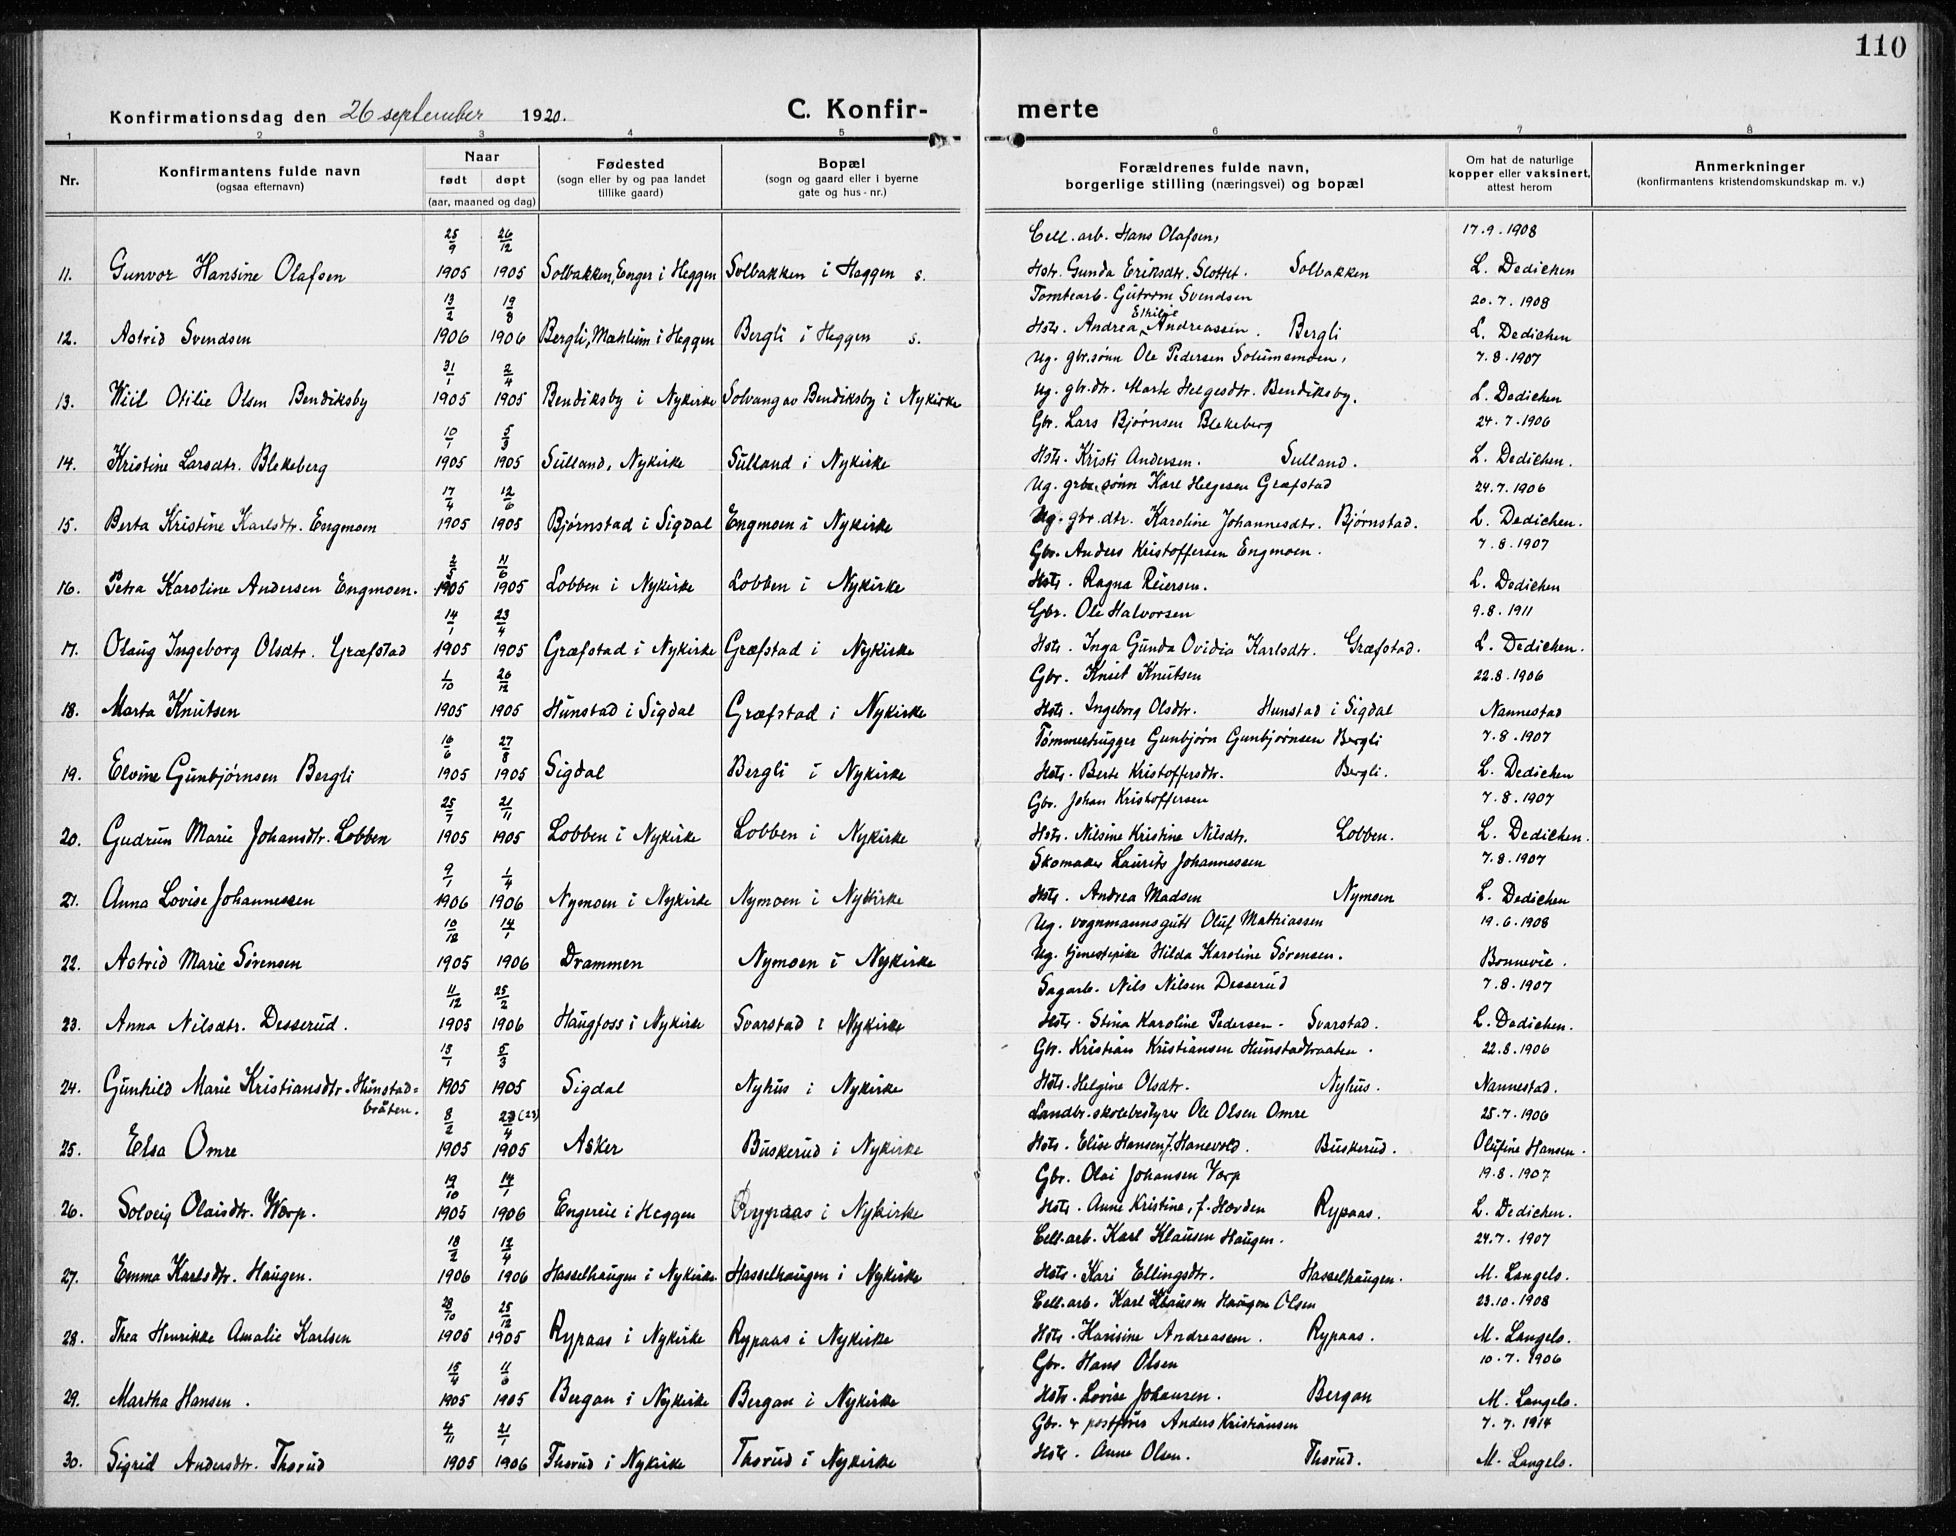 110
Konfirmationsdag den 26 september 1920. C. Konfir- merte
1 2 3 4 5 6 7 8
Nr. Konfirmantens fulde navn (ogsaa efternavn) Naar født døpt (aar, maaned og dag) Fødested (sogn eller by og paa landet tillike gaard) Bopæl (sogn og gaard eller i byerne gate og hus-nr.) Forældrenes fulde navn, borgerlige stilling (næringsvei) og bopæl Om hat de naturlige kopper eller vaksinert, attest herom Anmerkninger (konfirmantens kristendomskundskap m. v.)
25/9 26/12 Cell. arb. Hans Olafsen, 17.9.1908
11. Gunvor Hansine Olafsen 1905 1905 Solbakken, Enger i Heggen Solbakken i Heggen s. Hstr. Gunda Eriksdtr. Slottet. Solbakken L. Dedichen
13/2 19/8 Tomtearb. Gutorm Svendsen 20.7.1908
12. Astrid Svendsen 1906 1906 Bergli, Mæhlum i Heggen Bergli i Heggen s. Hstr. Andrea Andreassen. Bergli L. Dedichen
31/1 2/4 Ug. gbr.sønn Ole Pedersen Solumsmoen, 7.8.1907
13. Wiil Otilie Olsen Bendiksby 1905 1905 Bendiksby i Nykirke Solvang av Bendiksby i Nykirke Ug. gbr.dtr. Marte Helgesdtr. Bendiksby. L. Dedichen
10/1 5/3 Gbr. Lars Bjørnsen Blekeberg 24.7.1906
14. Kristine Larsdtr. Blekeberg 1905 1905 Sulland, Nykirke Sulland i Nykirke Hstr. Kristi Andersen. Sulland. L. Dedichen.
17/4 12/6 Ug. grbr. sønn Karl Helgesen Græfstad 24.7.1906
15. Berta Kristine Karlsdtr. Engmoen 1905 1905 Bjørnstad i Sigdal Engmoen i Nykirke Ug. gbr.dtr. Karoline Johannesdtr. Bjørnstad. L. Dedichen.
2/5 11/6 Gbr. Anders Kristoffersen Engmoen. 7.8.1907
16. Petra Karoline Andersen Engmoen. 1905 1905 Lobben i Nykirke Lobben i Nykirke Hstr. Ragna Reiersen. L. Dedichen
14/1 23/4 Gbr. Ole Halvorsen 9.8.1911
17. Olaug Ingeborg Olsdtr. Græfstad 1905 1905 Græfstad i Nykirke Græfstad i Nykirke Hstr. Inga Gunda Ovidia Karlsdtr. Græfstad. L. Dedichen.
1/10 26/12 Gbr. Knut Knutsen 22.8.1906
18. Marta Knutsen 1905 1905 Hunstad i Sigdal Græfstad i Nykirke Hstr. Ingeborg Olsdtr. Hunstad i Sigdal Nannestad
16/6 27/8 Tømmerhugger Gunbjørn Gunbjørnsen Bergli 7.8.1907
19. Elvine Gunbjørnsen Bergli 1905 1905 Sigdal Bergli i Nykirke Hstr. Berte Kristoffersdtr. Bergli. L. Dedichen
25/7 21/11 Gbr. Johan Kristoffersen 7.8.1907
20. Gudrun Marie Johansdtr. Lobben 1905 1905 Lobben i Nykirke Lobben i Nykirke Hstr. Nilsine Kristine Nilsdtr. Lobben. L. Dedichen.
9/1 1/4 Skomaker Laurits Johannessen 7.8.1907
21. Anna Lovise Johannessen 1906 1906 Nymoen i Nykirke Nymoen i Nykirke Hstr. Andrea Madsen Nymoen L. Dedichen
10/12 14/1 Ug. vognmannsgutt Oluf Mathiassen 19.6.1908
22. Astrid Marie Sørensen 1905 1906 Drammen Nymoen i Nykirke Ug. tjenestepike Hilda Karoline Sørensen. Bonnevie.
11/12 25/2 Sagarb. Nils Nilsen Desserud 7.8.1907
23. Anna Nilsdtr. Desserud. 1905 1906 Haugfoss i Nykirke Svarstad i Nykirke Hstr. Stina Karoline Pedersen. Svarstad. L. Dedichen.
13/1 5/3 Gbr. Kristian Kristiansen Hunstadbraaten. 22.8.1906
24. Gunhild Marie Kristiansdtr. Hunstad- 1905 1905 Sigdal Nyhus i Nykirke Hstr. Helgine Olsdtr. Nyhus. Nannestad.
bråten. 8/2 23(23)/4 Landbr.skolebestyrer Ole Olsen Omre 25.7.1906
25. Elsa Omre 1905 1905 Asker Buskerud i Nykirke Hstr. Elise Hansen f. Hanevold. Buskerud. Olufine Hansen.
19/10 14/1 Gbr. Olai Johansen Vorp 19.8.1907
26. Solveig Olaisdtr. Worp. 1905 1906 Engereie i Heggen Rypaas i Nykirke Hstr. Anne Kristine, f. Hovden Rypaas. L. Dedichen.
18/2 12/4 Cell.arb. Karl Klausen Haugen. 24.7.1907
27. Emma Karlsdtr. Haugen. 1906 1906 Hasselhaugen i Nykirke Hasselhaugen i Nykirke Hstr. Kari Ellingsdtr. Hasselhaugen. M. Langels.
28/10 25/12 Cell.arb. Karl Klausen Haugen Olsen 23.10.1908
28. Thea Henrikke Amalie Karlsen 1905 1905 Rypaas i Nykirke Rypaas i Nykirke Hstr. Hansine Andreassen. Rypaas. M. Langels.
15/4 11/6 Gbr. Hans Olsen 10.7.1906
29. Martha Hansen. 1905 1905 Bergan i Nykirke Bergan i Nykirke Hstr. Lovise Johansen. Bergan M. Langels.
4/11 21/1 Gbr. & postfører Anders Kristiansen 7.7.1914
30. Sigrid Andersdtr. Thorud 1905 1906 Thorud i Nykirke Thorud i Nykirke Hstr. Anne Olsen. Thorud. M. Langels.